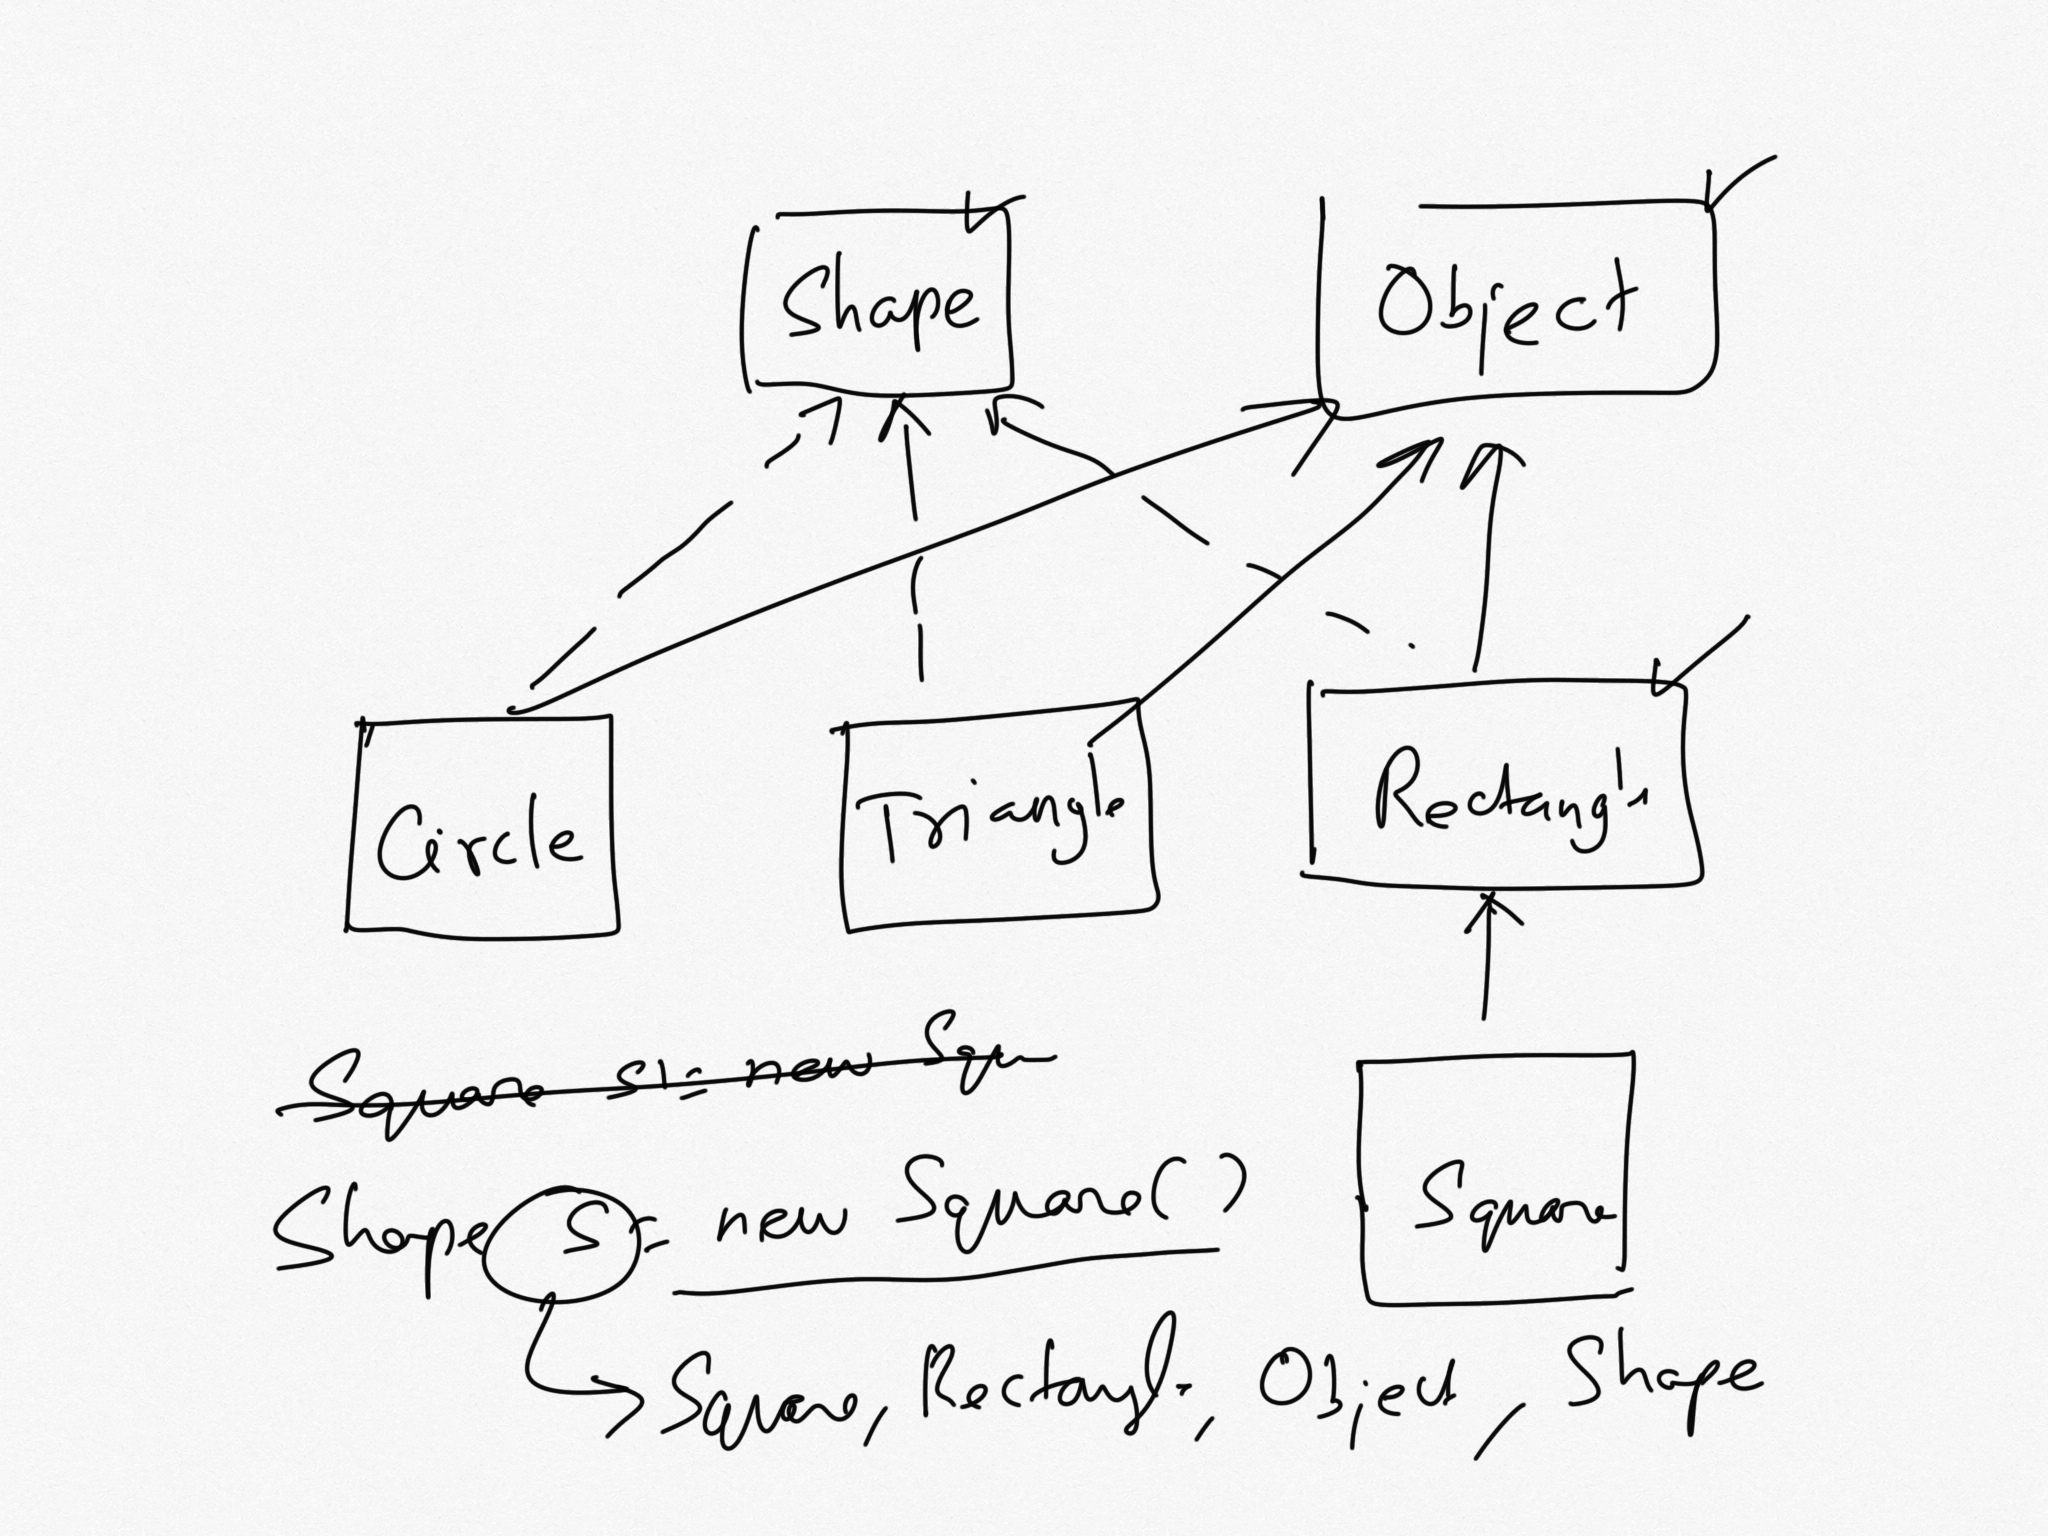 Shape Object
Circle Triangle Rectangle
Square s1= new Squ
Square
Shape s= new Square()
Square, Rectangle, Object, Shape